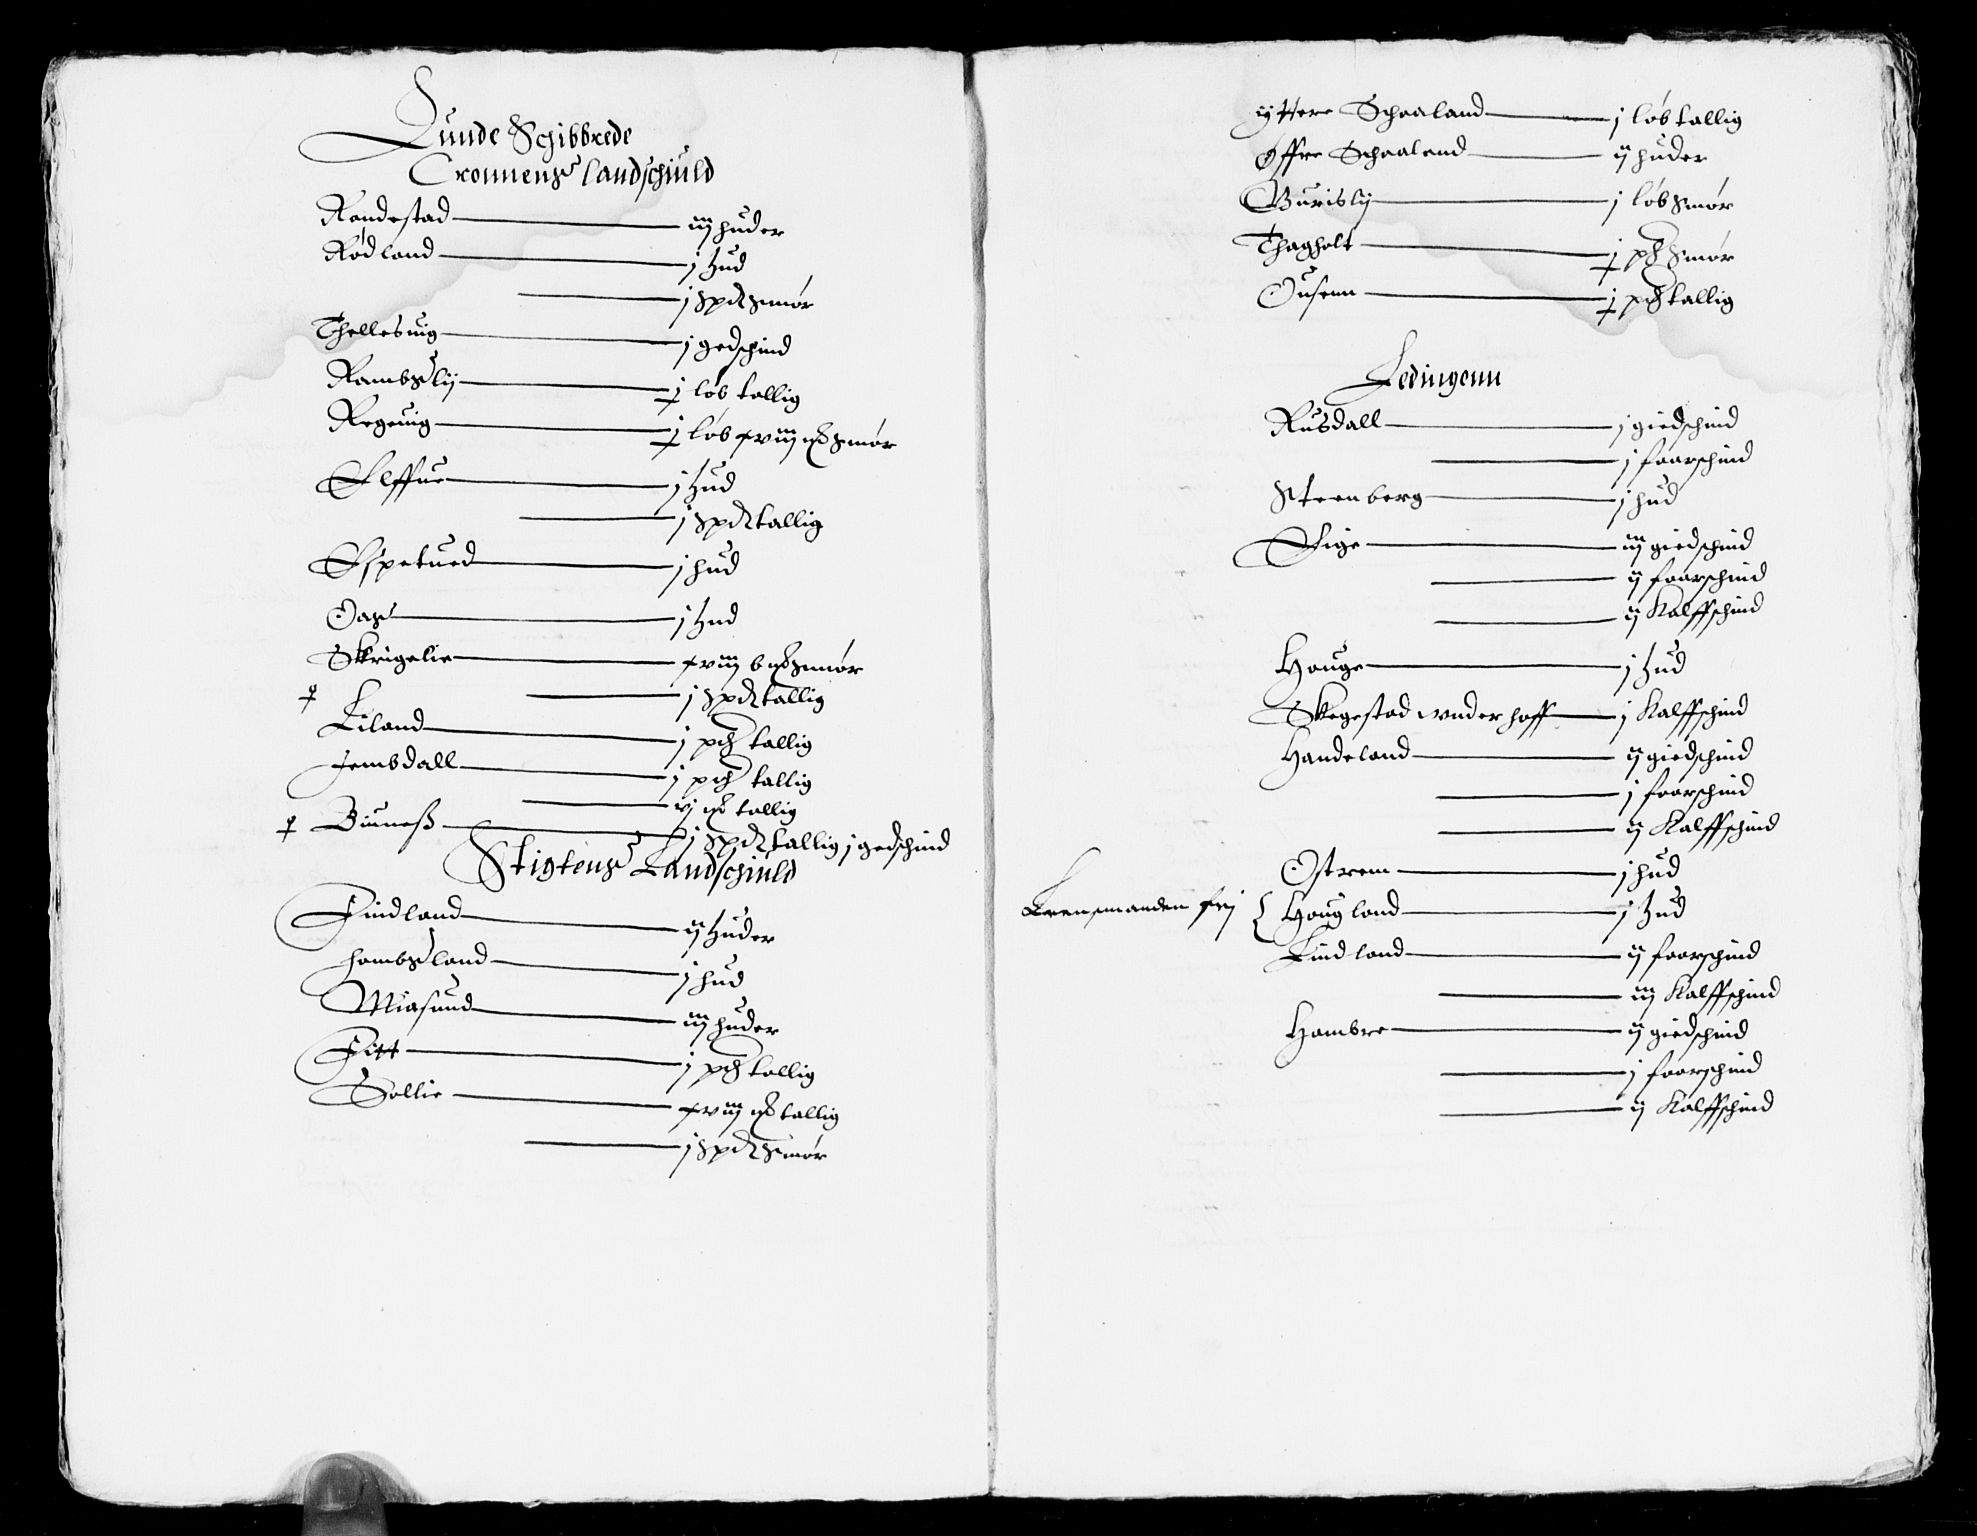 Lunde Schibbrede
Cronnens landschiuld
Rondestad — iij huder
Rødland — j hud
— j spd smør
Thellesuig — j gedschind
Rambslij — j løb tallig
Regeuig — j løb xviij mrk smør
Elffue — j hud
— j spd tallig
Espetued — j hud
Oas — j hud
Skrigelie — xviij b mrk smør
— j spd tallig
Liland — j pd tallig
Jembdall — j pd tallig
— vj mrk tallig
Biuneß — j spd tallig j gedschind
Stigtens Landschiuld
Findland — ij huder
hombsland — j hud
Miasund — iij huder
Fitt — j pd tallig
Sollie — xviij mrk tallig
— j spd smør
ijttere Schaaland — j løb tallig
Øffre Schaaland — ij huder
Burislij — j løb smør
Thagholt — j pd smør
Ousenn — j pd tallig
Fedingenn
Rusdall — j giedschind
— j faarschind
Steenberg — j hud
Eige — iij giedschind
— ij faarschind
— ij Kalffschind
Houge — j hud
Skegestad vnder hoff — j Kalffschind
Handeland — ij giedschind
— j faarschind
— ij Kalffschind
Ostrem — j hud
Leensmanden frij { Hougland — j hud
Lindland — ij faarschind
— iij Kalffschind
Hambre — ij giedschind
— j faarschind
— ij Kalffschind